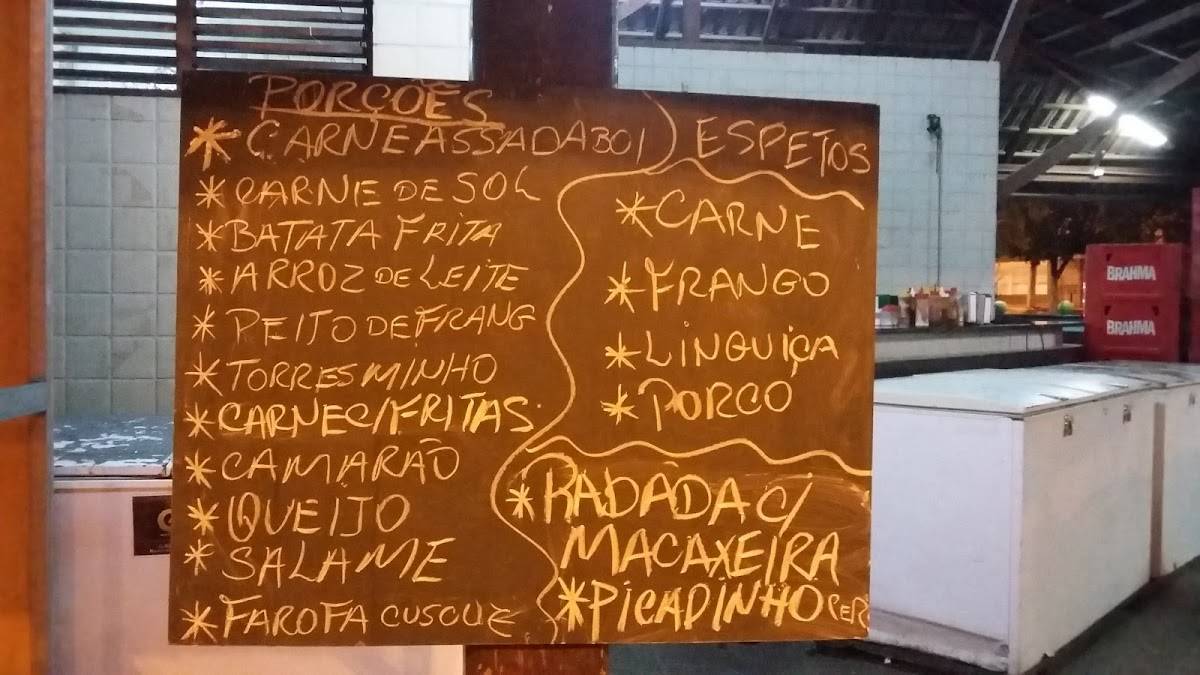 PORÇÕES
* CARNE ASSADA BOI
* CARNE DE SOL
* BATATA FRITA
* ARROZ DE LEITE
* PEITO DE FRANG
* TORRESMINHO
* CARNE C/FRITAS.
* CAMARÃO
* QUEIJO
* SALAME
* FAROFA CUSCUZ
ESPETOS
* CARNE
* FRANGO
* LINGUIÇA
* PORCO
* RADADA C/
MACAXEIRA
* PICADINHO
BRAHMA
BRAHMA